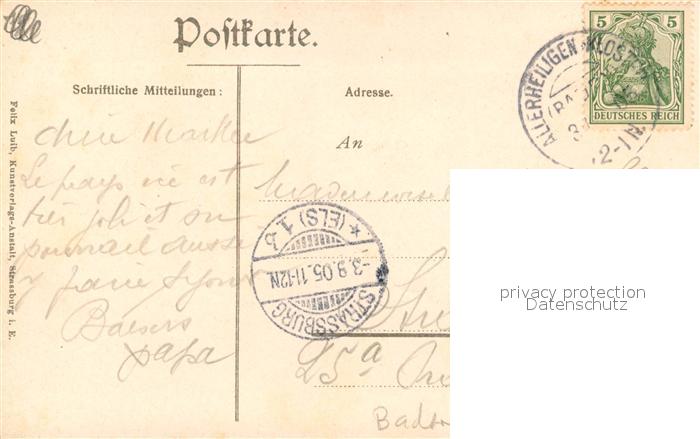 Postkarte.
Schriftliche Mitteilungen:
Adresse.
An
5 5
DEUTSCHES REICH
ALLERHEILIGEN-KLOSTER
Felix Luib, Kunstverlags-Anstalt, Strassburg i. E.
chère
Le pays ici est
très joli et on
pourrait aussi
y faire séjour
Baisers
papa
STRASSBURG
* (ELS) 1 b
-3.9.05.11-12N
25a
privacy protection
Datenschutz